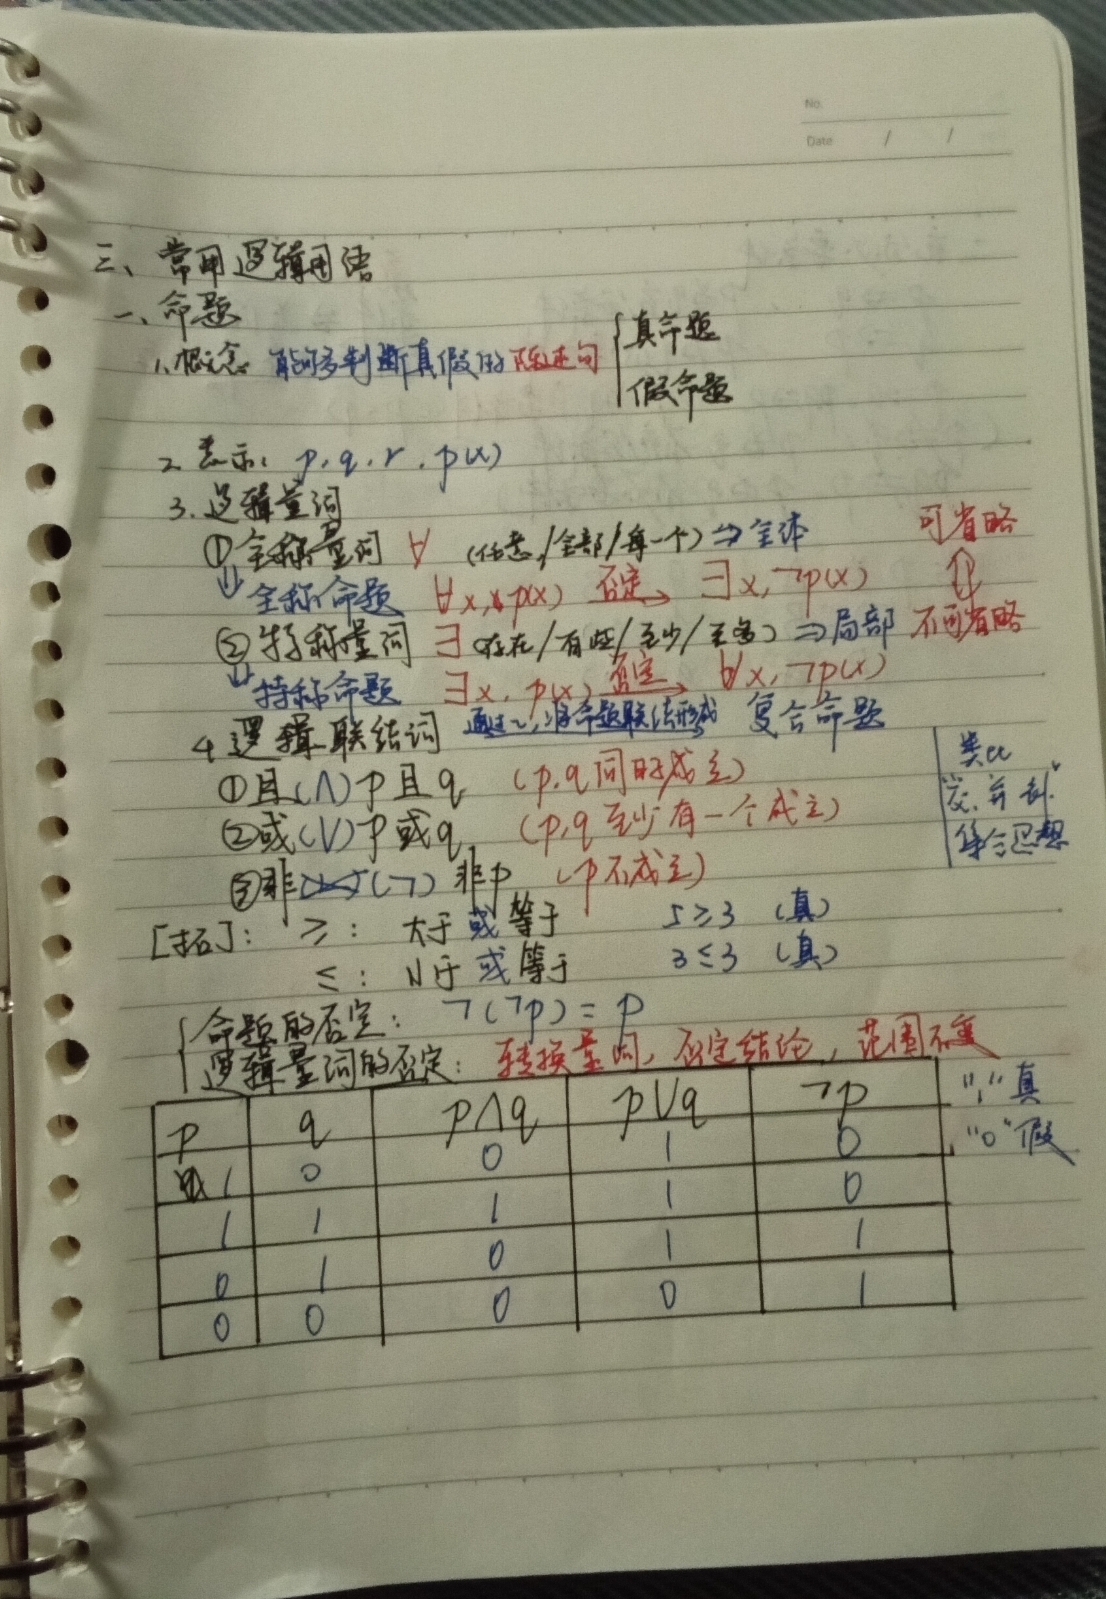 No.
Date / /
三、常用逻辑用语
一、命题
1、概念 能够判断真假的陈述句 { 真命题
假命题
2、表示: p, q, r, p(x)
3、逻辑量词
①全称量词 ∀ (任意/全部/每一个) ⇒ 全体 可省略
⇓全称命题 ∀x, p(x) 否定→ ∃x, ¬p(x) ⇕
②特称量词 ∃ (存在/有些/至少/至多) ⇒ 局部 不可省略
⇓特称命题 ∃x, p(x) 否定→ ∀x, ¬p(x)
4.逻辑联结词 命题联结形成 复合命题
①且(∧) p且q (p,q同时成立) 类比
②或(∨) p或q (p,q至少有一个成立) "交、并、补"
③非(¬) 非p (p不成立) 集合思想
[拓]: ≥: 大于或等于 5≥3 (真)
≤: 小于或等于 3≤3 (真)
命题的否定: ¬(¬p)=p
逻辑量词的否定: 转换量词, 否定结论, 范围不变
p q p∧q p∨q ¬p "1"真
1 0 0 1 0 "0"假
1 1 1 1 0
0 1 0 1 1
0 0 0 0 1